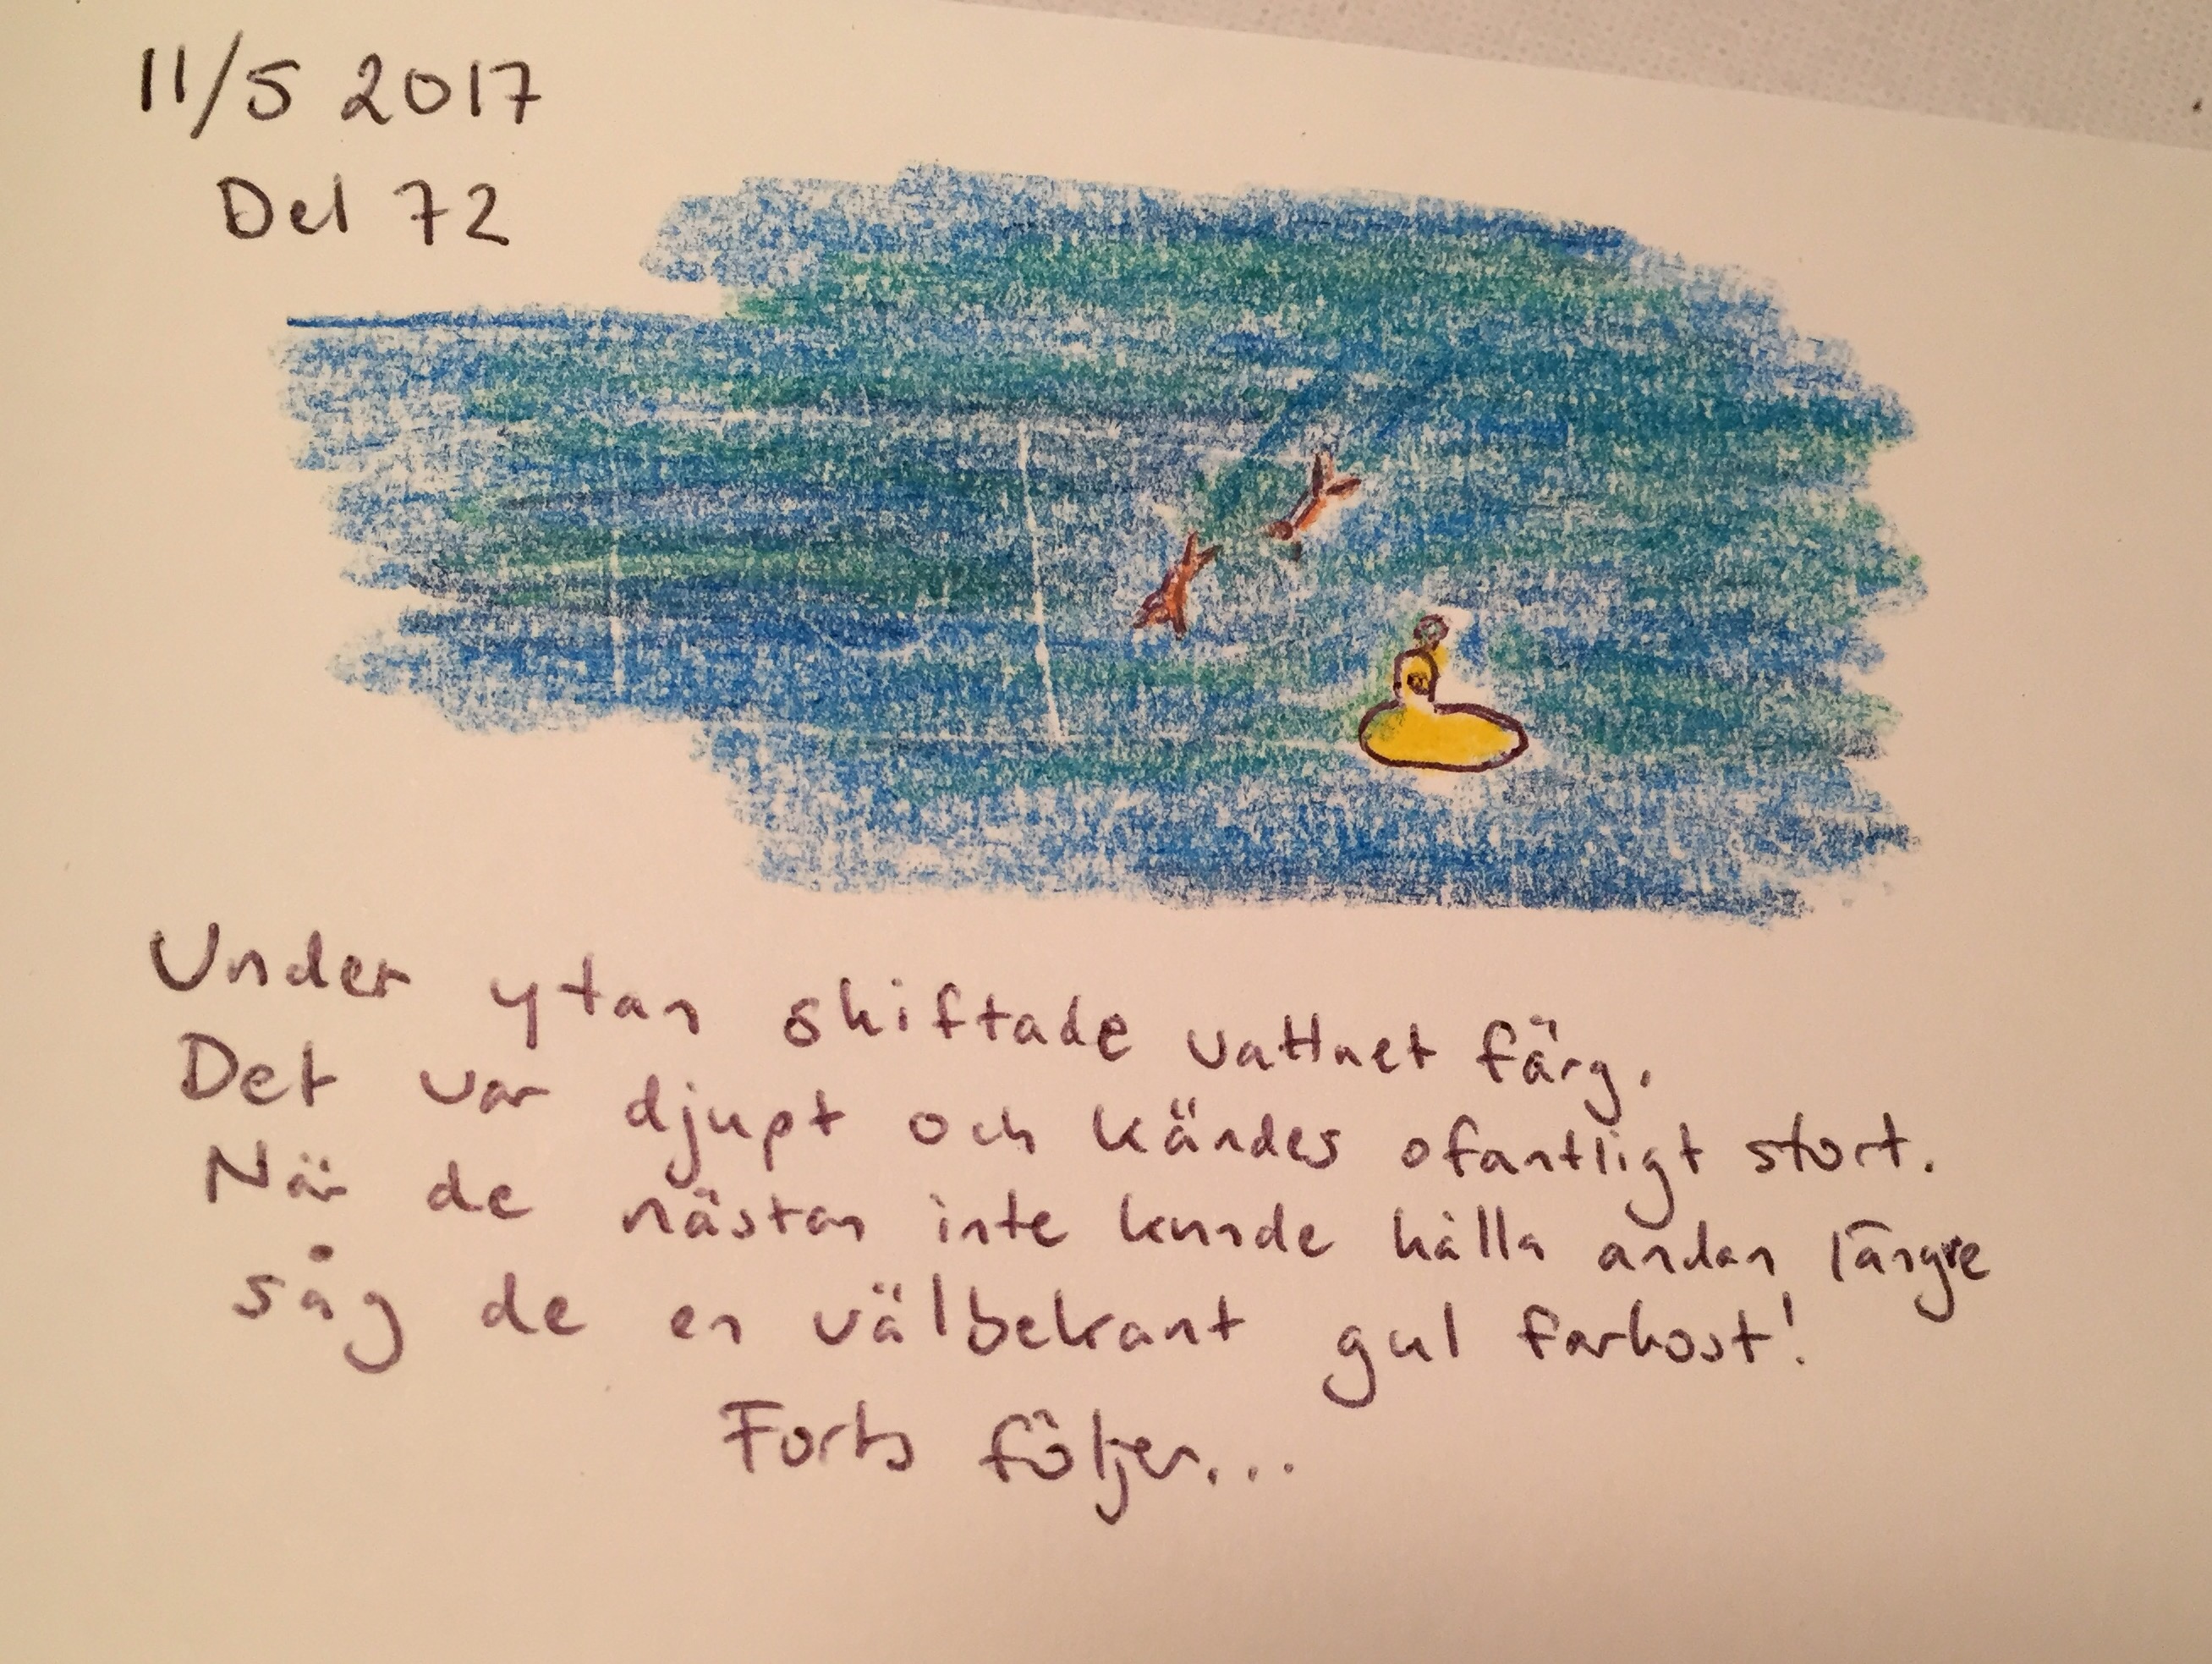 11/5 2017
Del 72
Under ytan skiftade vattnet färg.
Det var djupt och kändes ofantligt stort.
När de nästan inte kunde hålla andan längre
såg de en välbekant gul farkost!
Forts följer...